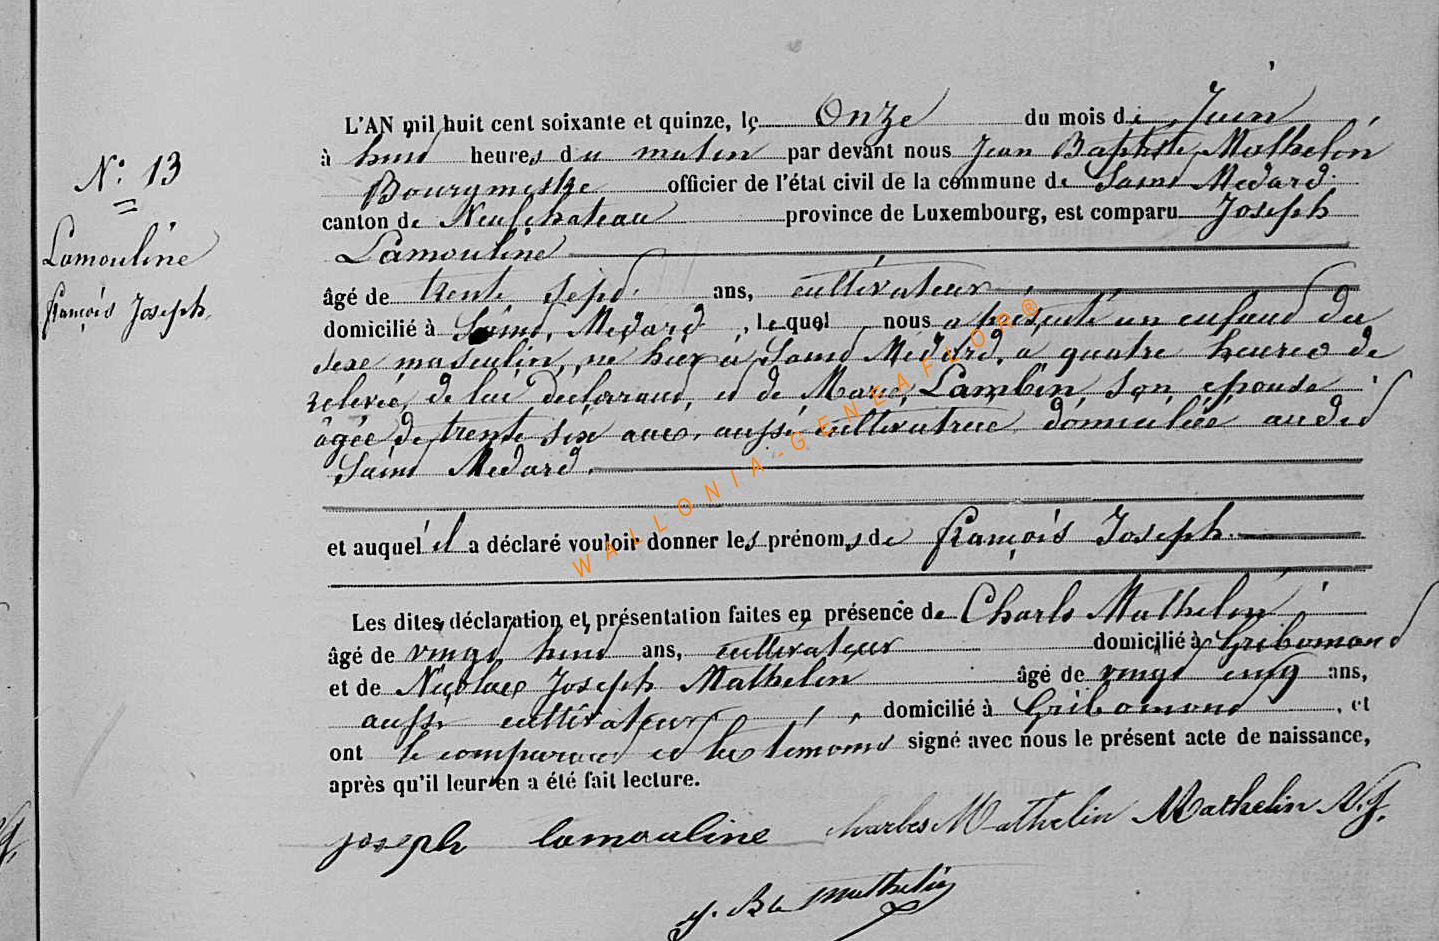 N° 13
Lamouline
françois Joseph
L'AN mil huit cent soixante et quinze, le Onze du mois de Juin
à huit heures du matin par devant nous Jean Baptiste Mathelin
Bourgmestre officier de l'état civil de la commune de Saint Médard
canton de Neufchateau province de Luxembourg, est comparu Joseph
Lamouline
âgé de trente sept ans, cultivateur
domicilié à Saint Médard, lequel nous a présenté un enfant du
sexe masculin, né hier à Saint Médard, à quatre heures de
relevée, de lui déclarant, et de Marie Lambin, son épouse
âgée de trente six ans, aussi cultivatrice, domiciliée audit
Saint Médard.
et auquel il a déclaré vouloir donner les prénoms de françois Joseph.
Les dites déclaration et présentation faites en présence de Charls Mathelin,
âgé de vingt huit ans, cultivateur domicilié à Gribomont
et de Nicolas Joseph Mathelin âgé de vingt cinq ans,
aussi cultivateur, domicilié à Gribomont, et
ont le comparant et les témoins signé avec nous le présent acte de naissance,
après qu'il leur en a été fait lecture.
joseph lamouline Charles Mathelin Mathelin N. J.
J. Bte Mathelin
WALLONIA-GENEAFLOR®